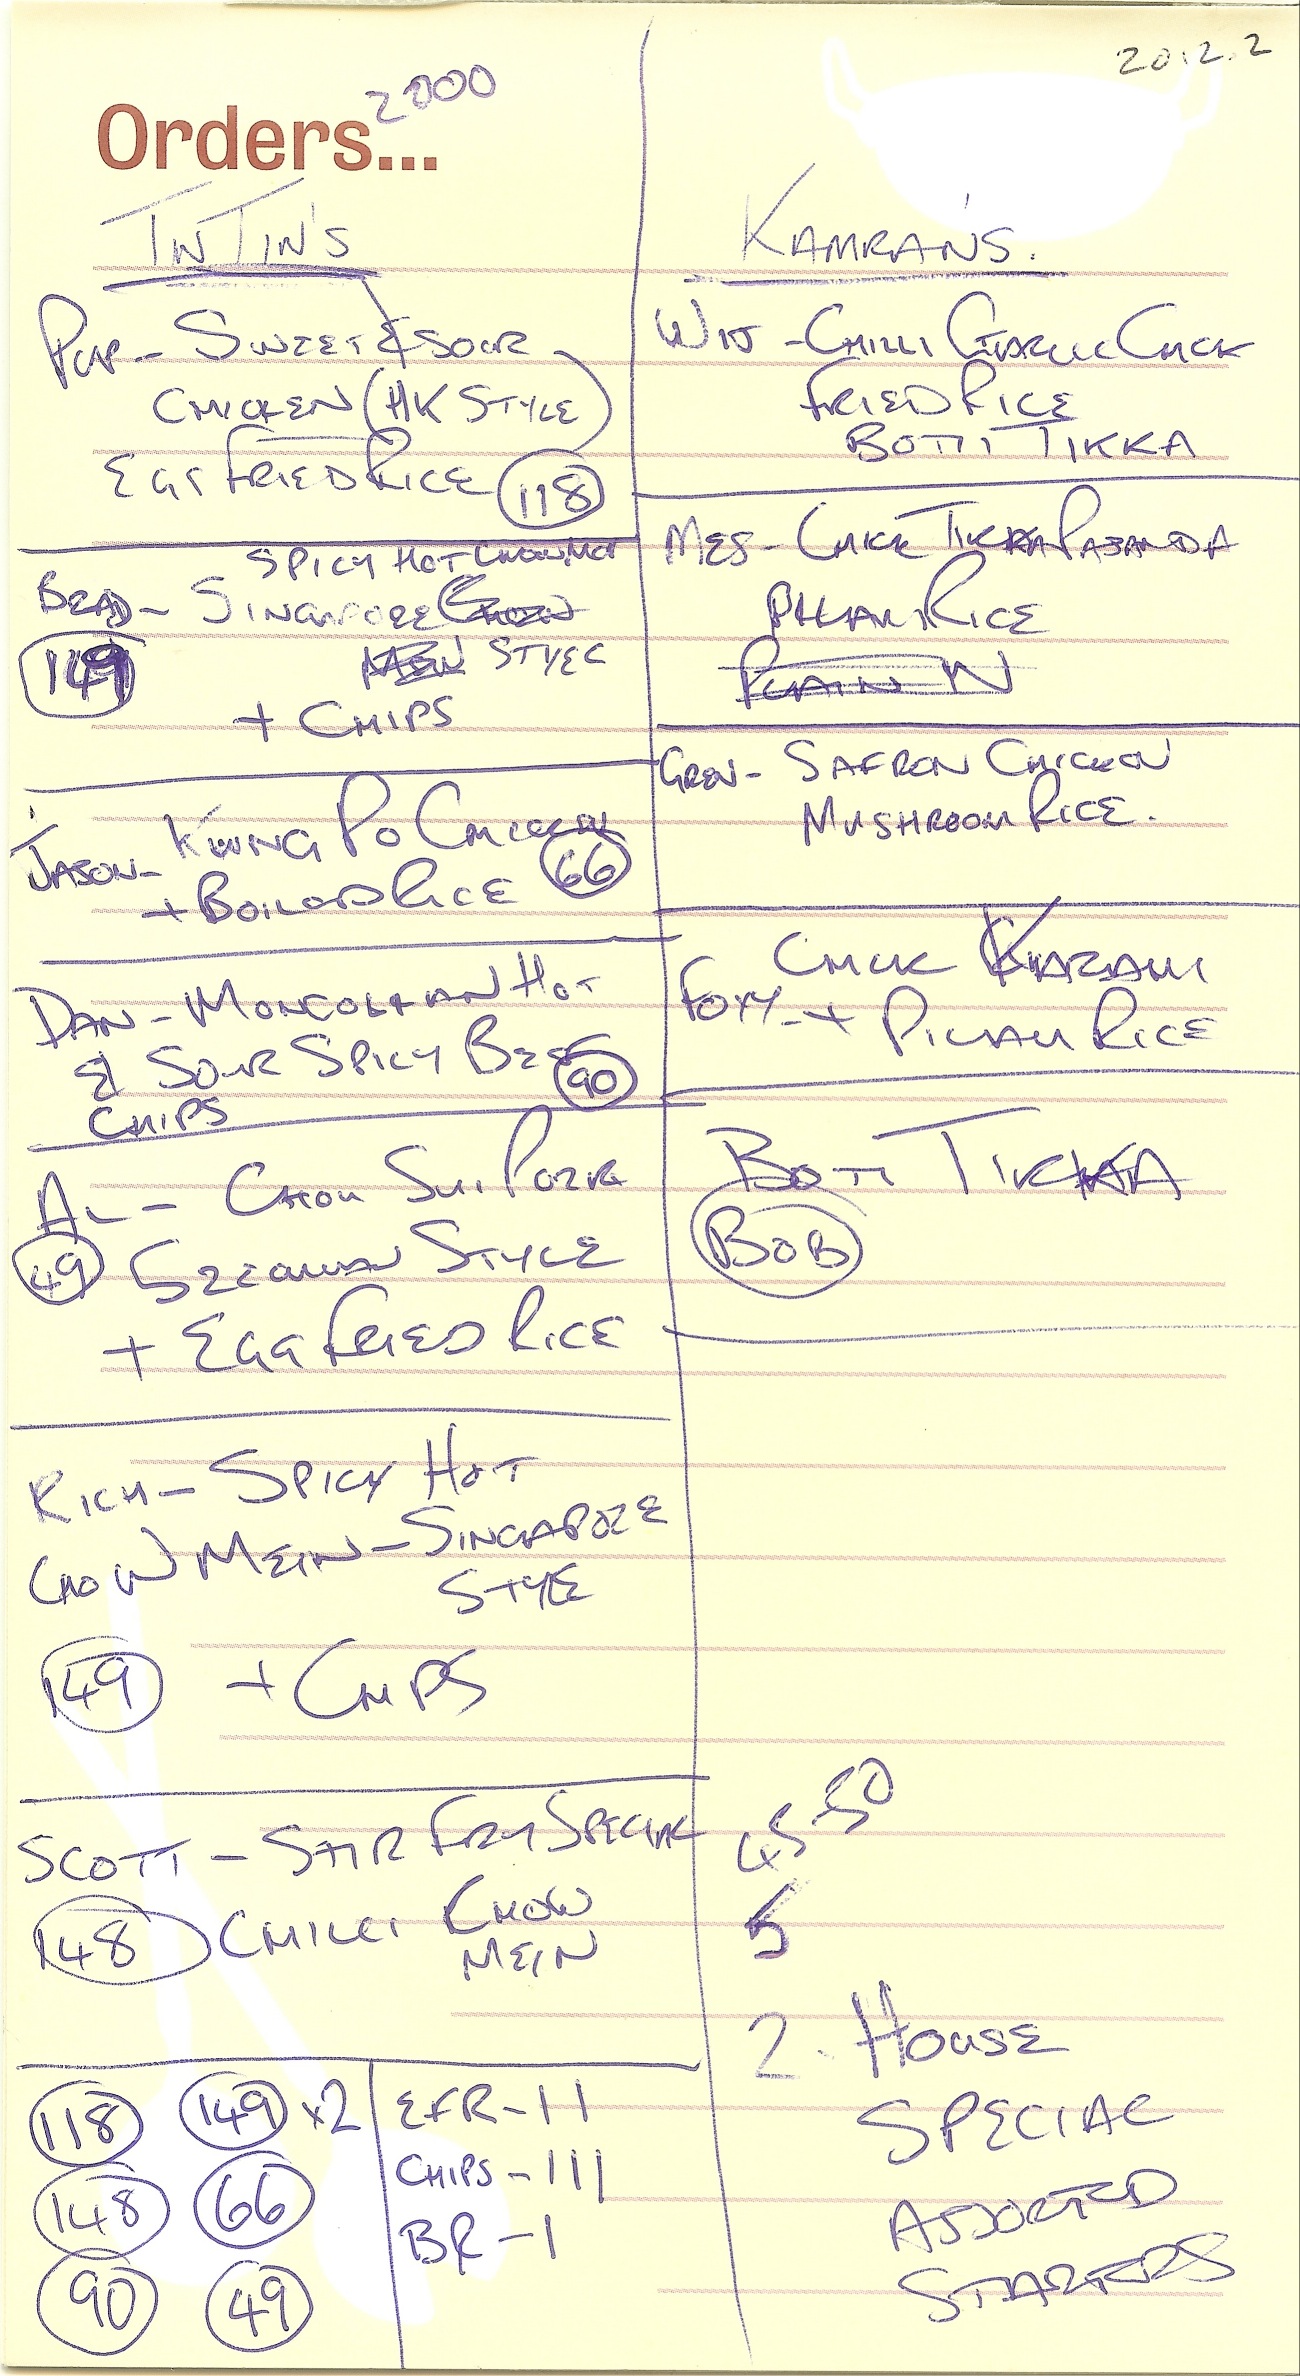 2012.2
2000
Orders...
TINTIN'S
PUP - SWEET & SOUR
CHICKEN (HK STYLE)
EGG FRIED RICE 118
SPICY HOT CHOW MEIN
BEAD - SINGAPORE CHOW
MEIN STYLE
149
+ CHIPS
JASON - KUNG PO CHICKEN
+ BOILED RICE 66
DAN - MONGOLIAN HOT
& SOUR SPICY BEEF
90
CHIPS
AL - CHOW SUI PORK
49 SZECHUAN STYLE
+ EGG FRIED RICE
RICH - SPICY HOT
CHOW MEIN - SINGAPORE
STYLE
149 + CHIPS
SCOTT - STIR FRY SPECIAL
148 CHILLI CHOW
MEIN
118 149 x2
148 66
90 49
EFR - II
CHIPS - III
BR - I
KAMRAN'S.
WIJ - CHILLI GARLIC CHICK
FRIED RICE
BOTTI TIKKA
MES - CHICK TIKKA PASANDA
PILLAU RICE
PLAIN N
GREN - SAFRON CHICKEN
MUSHROOM RICE.
CHICK KARAHI
FOXY - + PILLAU RICE
BOTI TIKKA
BOB
45.50
5
2. HOUSE
SPECIAL
ASSORTED
STARTERS